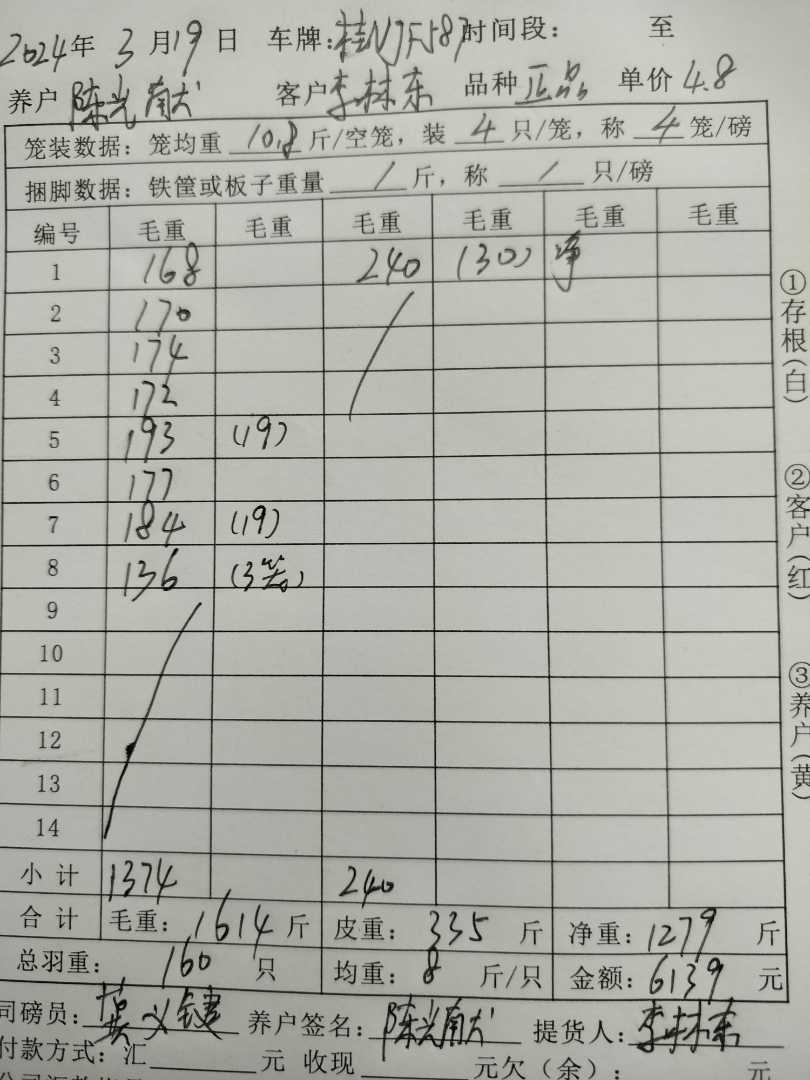 2024年 3 月19 日 车牌:桂NJF587时间段: 至
养户 陈光献 客户李林东 品种 正品 单价 4.8
笼装数据: 笼均重 10.8 斤/空笼, 装 4 只/笼, 称 4 笼/磅
捆脚数据: 铁筐或板子重量 / 斤, 称 / 只/磅
编号 毛重 毛重 毛重 毛重 毛重 毛重
1 168 240 (30) 净
2 170
3 174
4 172
5 193 (19)
6 177
7 184 (19)
8 136 (3笼)
9
10
11
12
13
14
小 计 1374 240
合 计 毛重: 1614 斤 皮重: 335 斤 净重: 1279 斤
总羽重: 160 只 均重: 8 斤/只 金额: 6139 元
司磅员: 龚义键 养户签名: 陈光献 提货人: 李林东
付款方式: 汇 元 收现 元欠(余): 元
①存根(白)
②客户(红)
③养户(黄)